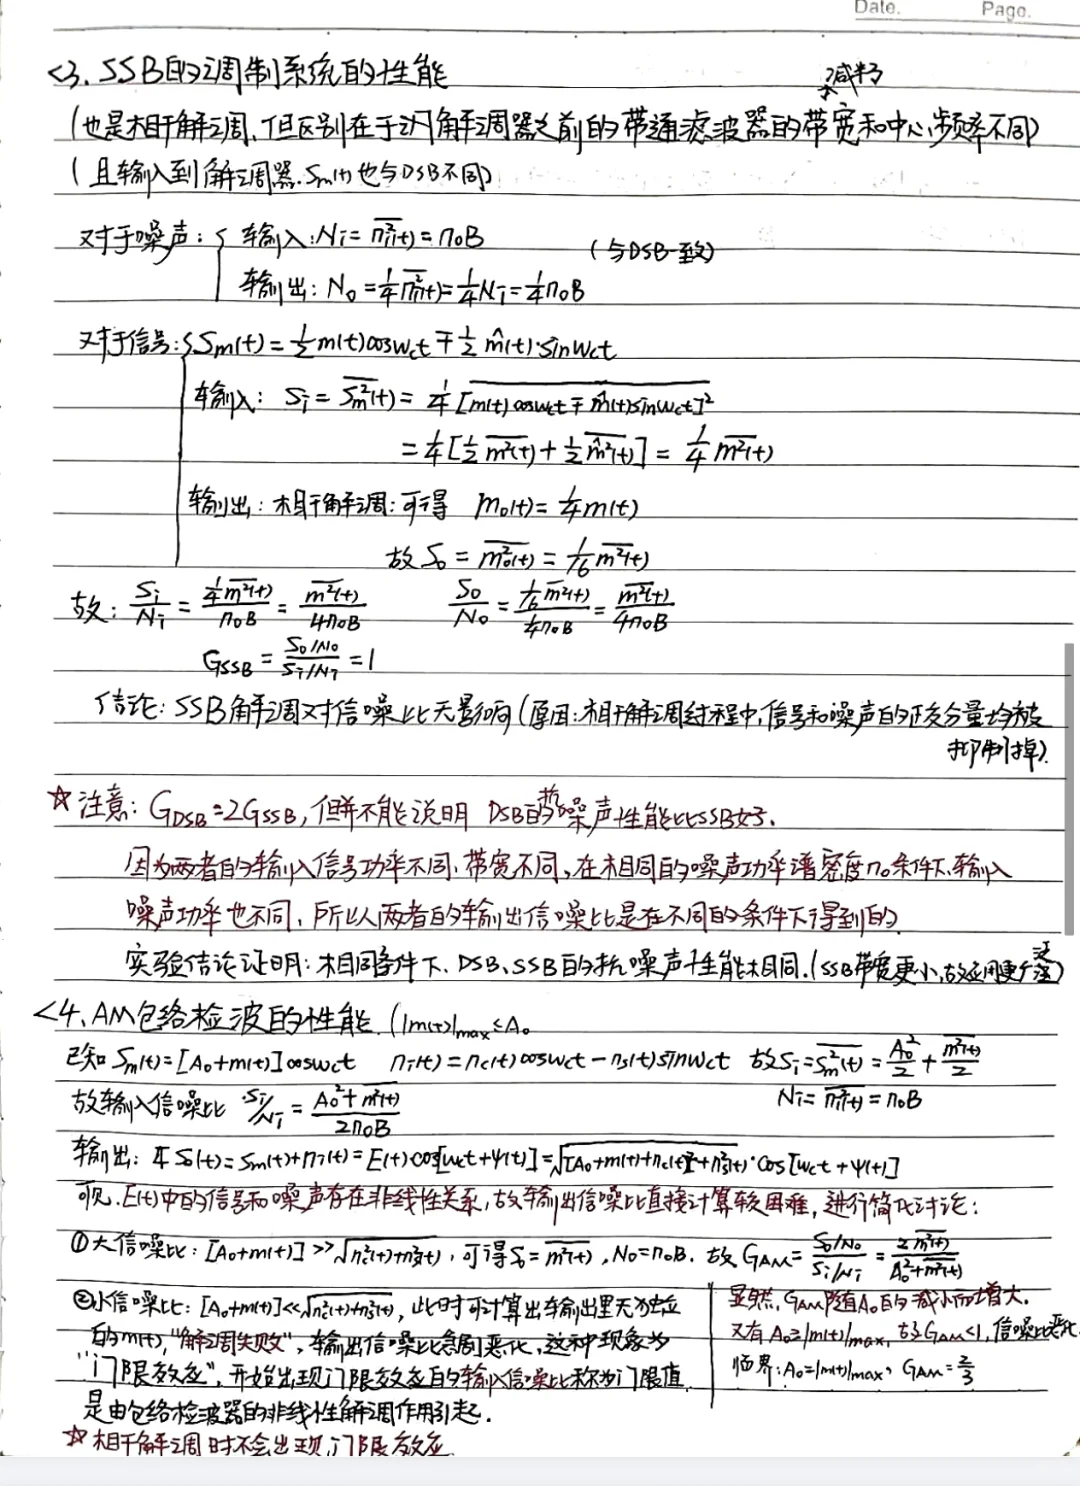 Date.    Page.
<3. SSB的调制系统的性能
减半了
(也是相干解调,但区别在于解调器之前的带通滤波器的带宽和中心频率不同)
(且输入到解调器.Sm(t)也与DSB不同)
对于噪声:{ 输入:Ni = \overline{ni²(t)} = n₀B    (与DSB一致)
输出: No = ¼\overline{ni²(t)} = ¼Ni = ¼n₀B
对于信号:{ Sm(t) = ½m(t)coswct ∓ ½m̂(t)·sinwct
输入: Si = \overline{Sm²(t)} = ¼\overline{[m(t)coswct ∓ m̂(t)sinwct]²}
= ¼[½\overline{m²(t)} + ½\overline{m̂²(t)}] = ¼\overline{m²(t)}
输出: 相干解调: 可得 mo(t) = ¼m(t)
故 So = \overline{mo²(t)} = 1/16 \overline{m²(t)}
故: Si/Ni = ¼\overline{m²(t)}/n₀B = \overline{m²(t)}/4n₀B    So/No = (1/16 \overline{m²(t)})/(¼n₀B) = \overline{m²(t)}/4n₀B
GSSB = (So/No)/(Si/Ni) = 1
结论: SSB解调对信噪比无影响(原因:相干解调过程中,信号和噪声的正交分量均被
抑制掉).
☆注意: GDSB=2GSSB, 但并不能说明 DSB的抗噪声性能比SSB好.
因为两者的输入信号功率不同,带宽不同,在相同的噪声功率谱密度n₀条件下,输入
噪声功率也不同,所以两者的输出信噪比是在不同的条件下得到的
实验结论证明:相同条件下、DSB、SSB的抗噪声性能相同.(SSB带宽更小,故运用更广泛)
<4. AM包络检波的性能 (|m(t)|max ≤ A₀
已知 Sm(t)=[A₀+m(t)]coswct    ni(t)=nc(t)coswct − ns(t)sinwct    故Si=\overline{Sm²(t)} = A₀²/2 + \overline{m²(t)}/2
故输入信噪比 Si/Ni = (A₀²+\overline{m²(t)})/2n₀B    Ni = \overline{ni²(t)} = n₀B
输出: So(t)=Sm(t)+ni(t)=E(t)cos[wct+ψ(t)]=√([A₀+m(t)+nc(t)]²+ns²(t))·cos[wct+ψ(t)]
可见.E(t)中的信号和噪声存在非线性关系,故输出信噪比直接计算较困难,进行简化讨论:
①大信噪比: [A₀+m(t)] >> √(nc²(t)+ns²(t)), 可得So=\overline{m²(t)}, No=n₀B. 故 GAM = (So/No)/(Si/Ni) = 2\overline{m²(t)}/(A₀²+\overline{m²(t)})
显然, GAM随A₀的减小而增大.
又有 A₀≥|m(t)|max, 故GAM<1, 信噪比恶化
临界: A₀=|m(t)|max, GAM=2/3
②小信噪比: [A₀+m(t)]<<√(nc²(t)+ns²(t)), 此时可计算出输出里无独立
的m(t), "解调失败", 输出信噪比急剧恶化, 这种现象为
"门限效应", 开始出现门限效应的输入信噪比称为门限值
是由包络检波器的非线性解调作用引起.
☆相干解调时不会出现门限效应